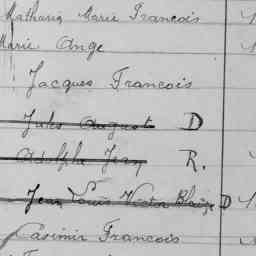 Mathurin Marie Francois
Marie Ange
Jacques Francois
Jules August D
Adolphe Jean R.
Jean Louis Victor Blaize D
Casimir Francois